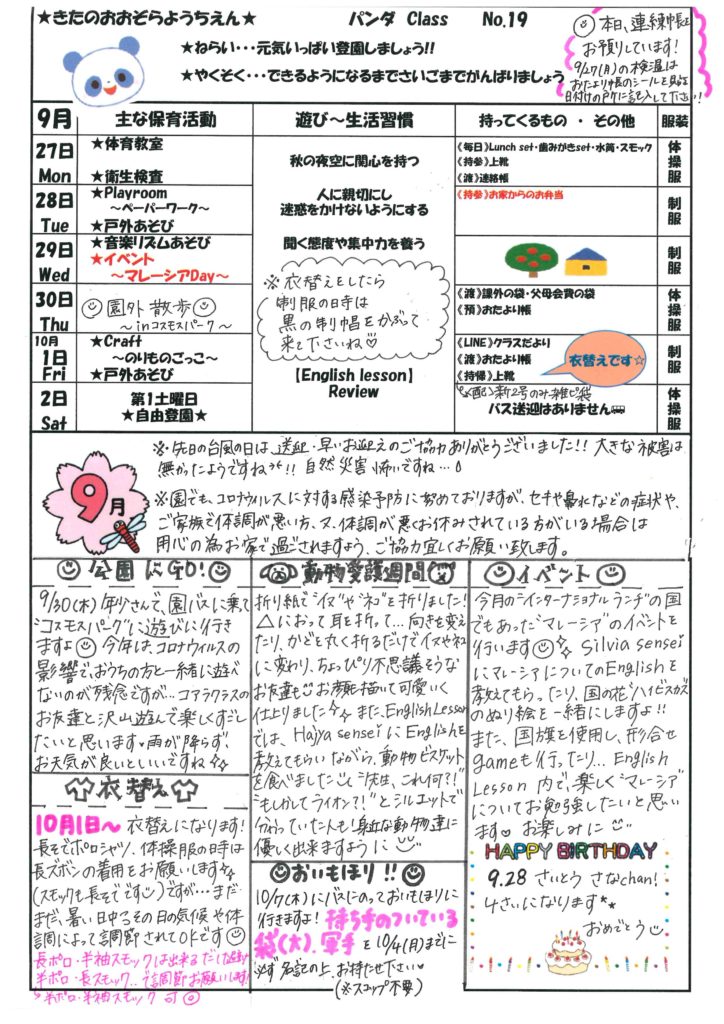 ★きたのおおぞらようちえん★
パンダ Class No.19
★ねらい・・・元気いっぱい登園しましょう!!
★やくそく・・・できるようになるまでさいごまでがんばりましょう
本日、連絡帳を
お預りしています!
9/27(月)の検温は
おたより帳のシールを見て
日付の所に記入して下さい!!
9月 主な保育活動 遊び～生活習慣 持ってくるもの ・ その他 服装
27日 Mon
★体育教室
★衛生検査
秋の夜空に関心を持つ
《毎日》Lunch set・歯みがきset・水筒・スモック
《持参》上靴
《渡》連絡帳
体操服
28日 Tue
★Playroom
～ペーパーワーク～
★戸外あそび
人に親切にし
迷惑をかけないようにする
《持参》お家からのお弁当
制服
29日 Wed
★音楽リズムあそび
★イベント
～マレーシアDay～
聞く態度や集中力を養う
制服
30日 Thu
園外散歩
～inコスモスパーク～
※衣替えをしたら
制服の時は
黒の制帽をかぶって
来て下さいね♡
《渡》課外の袋・父母会費の袋
《預》おたより帳
体操服
10月
1日 Fri
★Craft
～のりものごっこ～
★戸外あそび
《LINE》クラスだより
《渡》おたより帳
《持帰》上靴
衣替えです☆
制服
【English lesson】
Review
2日 Sat
第1土曜日
★自由登園★
《配》新2号のみ雑ピ袋
バス送迎はありません
体操服
9月
※先日の台風の日は、送迎・早いお迎えのご協力ありがとうございました!! 大きな被害は
無かったようですね!! 自然災害怖いですね…
※園でも、コロナウィルスに対する感染予防に努めておりますが、セキや鼻水などの症状や、
ご家族で体調が悪い方、又、体調が悪くお休みされている方がいる場合は
用心の為お家で過ごされますよう、ご協力宜しくお願い致します。
公園にGO!
9/30(木)年少さんで、園バスに乗て
"コスモスパーク"に遊びに行き
ますよ 今年は、コロナウィルスの
影響で、おうちの方と一緒に遊べ
ないのが残念ですが…コアラクラスの
お友達と沢山遊んで楽しくすごし
たいと思います。雨が降らず、
お天気が良いといいですね
衣替え
10月1日～ 衣替えになります!
長そでポロシャツ、体操服の時は
長ズボンの着用をお願いします
(スモックも長そでです)ですが…まだ
まだ、暑い日中、その日の気候や体
調によって調節されてOKです
長ポロ・半袖スモックは出来るだけ
半ポロ・長スモック‥で調節お願いします!
半ポロ・半袖スモック 可
動物愛護週間
折り紙で"イヌ"や"ネコ"を折りました!
△におって耳を折って…向きを変え
たり、かどを丸く折るだけでイヌやネコ
に変わり、ちょっぴり不思議そうな
お友達もお顔を描いて可愛いく
仕上りました また、English Lesson
では、Hajya senseiにEnglishを
教えてもらいながら、動物ビスケット
を食べました 「先生、これ何?!」
"もしかしてライオン?!"とシルエットで
分かっていた人も!身近な動物達に
優しく出来ますように
おいもほり!!
10/7(木)にバスにのっておいもほりに
行きますよ! 持ち手のついている
袋(大)、軍手を10/4(月)までに
必ず名記の上、お持たせ下さい
(※スコップ不要)
イベント
今月の"インターナショナルランチ"の国
でもあった"マレーシア"のイベントを
行います Silvia sensei
にマレーシアについてのEnglishを
教えてもらったり、国の花"ハイビスカス"
のぬり絵を一緒にしますよ!!
また、国旗を使用し、形合せ
gameも行ったり…English
Lesson内で、楽しく"マレーシア"
についてお勉強したいと思い
ます お楽しみに
HAPPY BiRTHDAY
9.28 さいとう さなchan!
4さいになります**
おめでとう